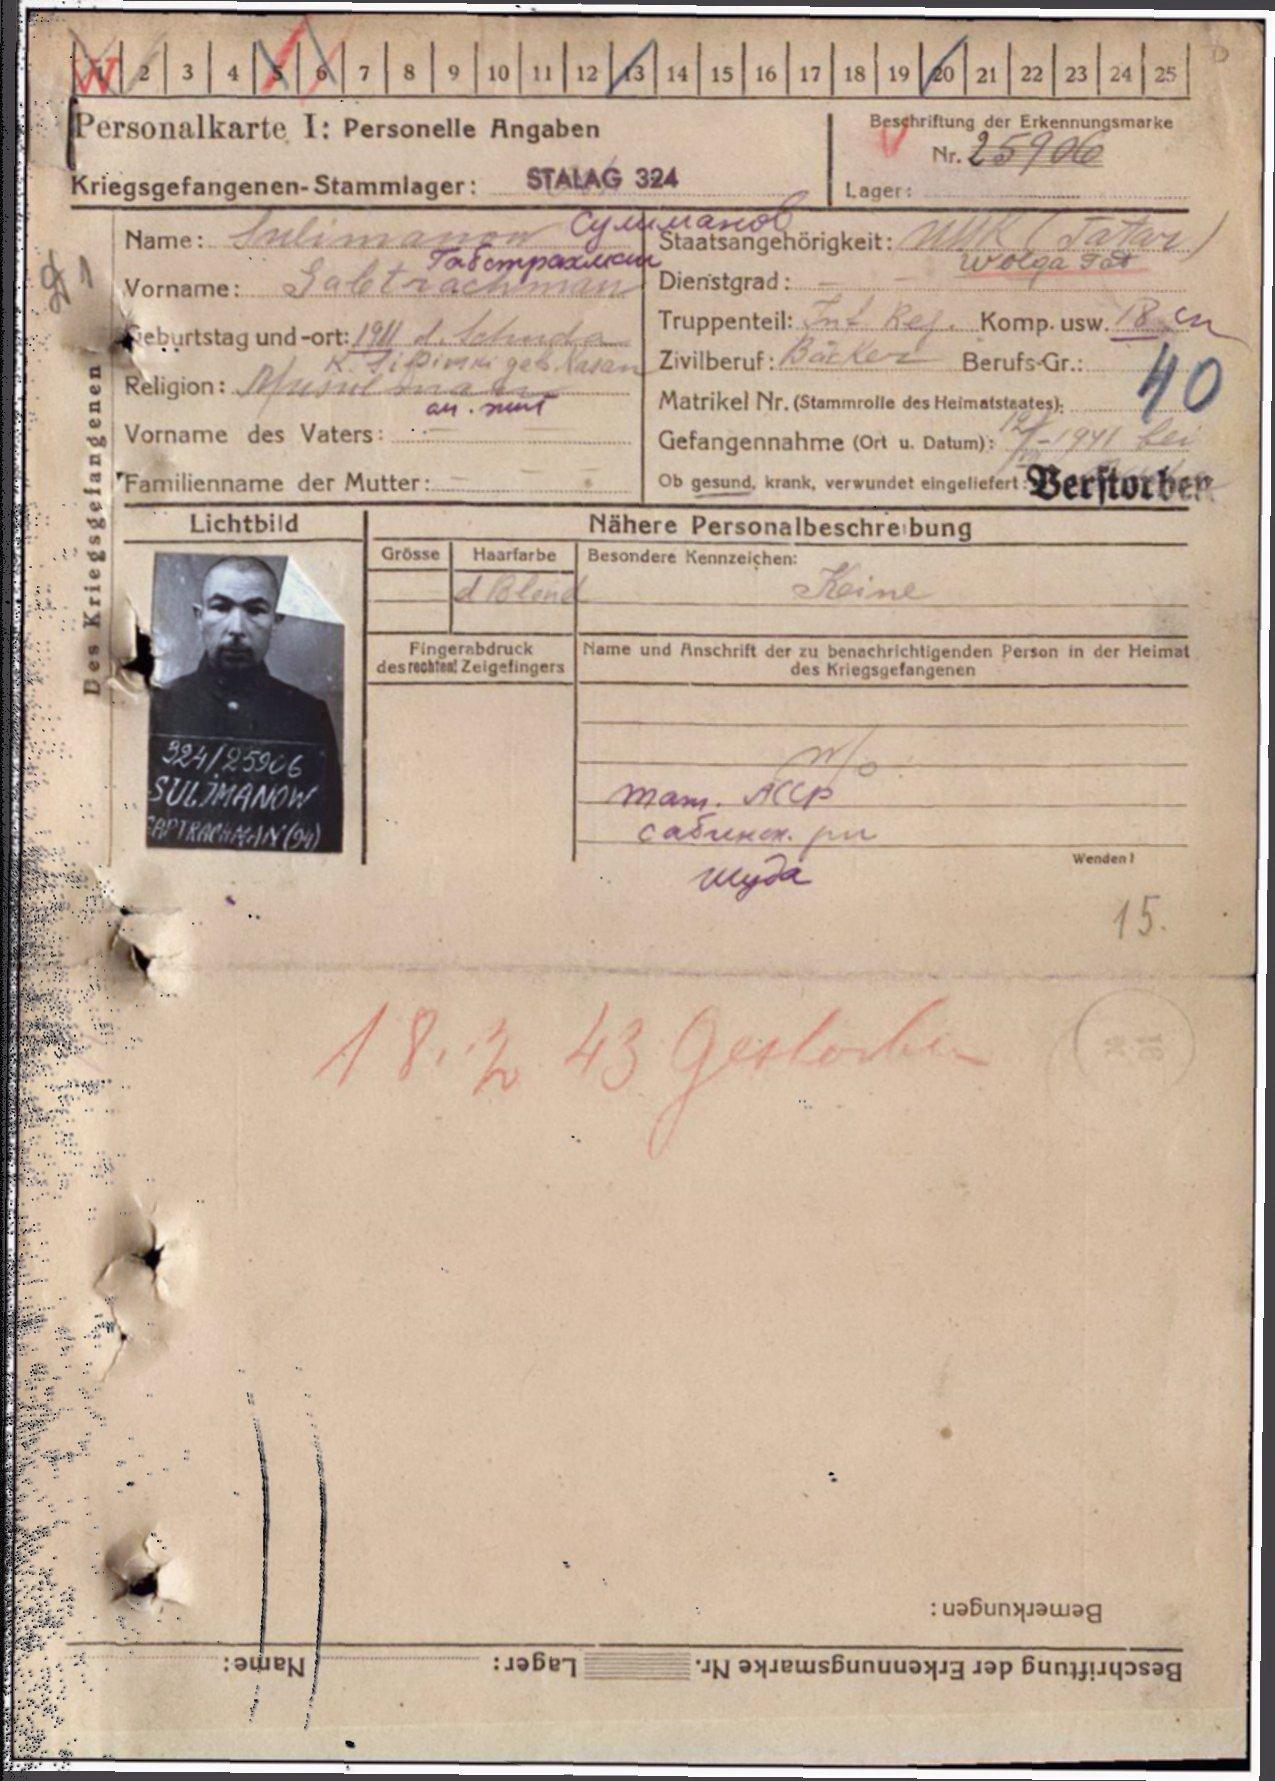 W 2 3 4 5 6 7 8 9 10 11 12 13 14 15 16 17 18 19 20 21 22 23 24 25
Personalkarte I: Personelle Angaben
Beschriftung der Erkennungsmarke
Nr. 25906
Kriegsgefangenen-Stammlager: STALAG 324
Lager:
Des Kriegsgefangenen
Name: Sulimanow Сулиманов
Габстрахман
Vorname: Gabtrachman
Geburtstag und -ort: 1911 d. Schuda
geb. Kasan
Religion: Muselmann
Vorname des Vaters: —
Familienname der Mutter: —
Staatsangehörigkeit: (Tatar)
Wolga Tat
Dienstgrad: —
Truppenteil: Inf. Reg. Komp. usw. 18
Zivilberuf: Bäcker Berufs-Gr.:
40
Matrikel Nr. (Stammrolle des Heimatstaates):
Gefangennahme (Ort u. Datum): 1941 bei
Ob gesund, krank, verwundet eingeliefert:
Verstorben
Lichtbild
Nähere Personalbeschreibung
Grösse
Haarfarbe
Besondere Kennzeichen:
d Blond
Keine
Fingerabdruck
des rechten! Zeigefingers
Name und Anschrift der zu benachrichtigenden Person in der Heimat
des Kriegsgefangenen
324/25906
SULIMANOW
тат. АССР
сабинск. рн
шуда
Wenden!
15.
18. 2 43 Gestorben
Bemerkungen:
Beschriftung der Erkennungsmarke Nr. Lager: Name: